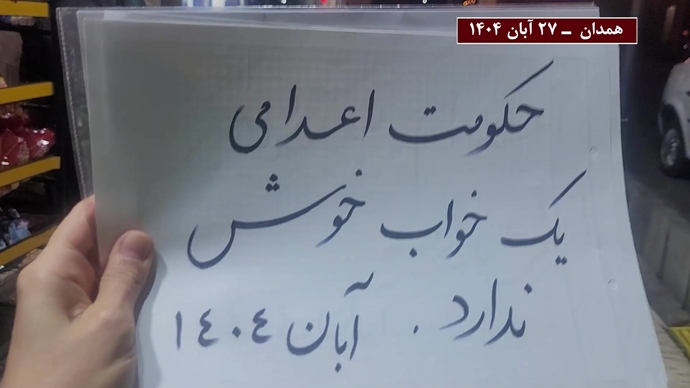 همدان ــ ۲۷ آبان ۱۴۰۴
حکومت اعدامی
یک خواب خوش
ندارد . آبان ۱۴۰۴